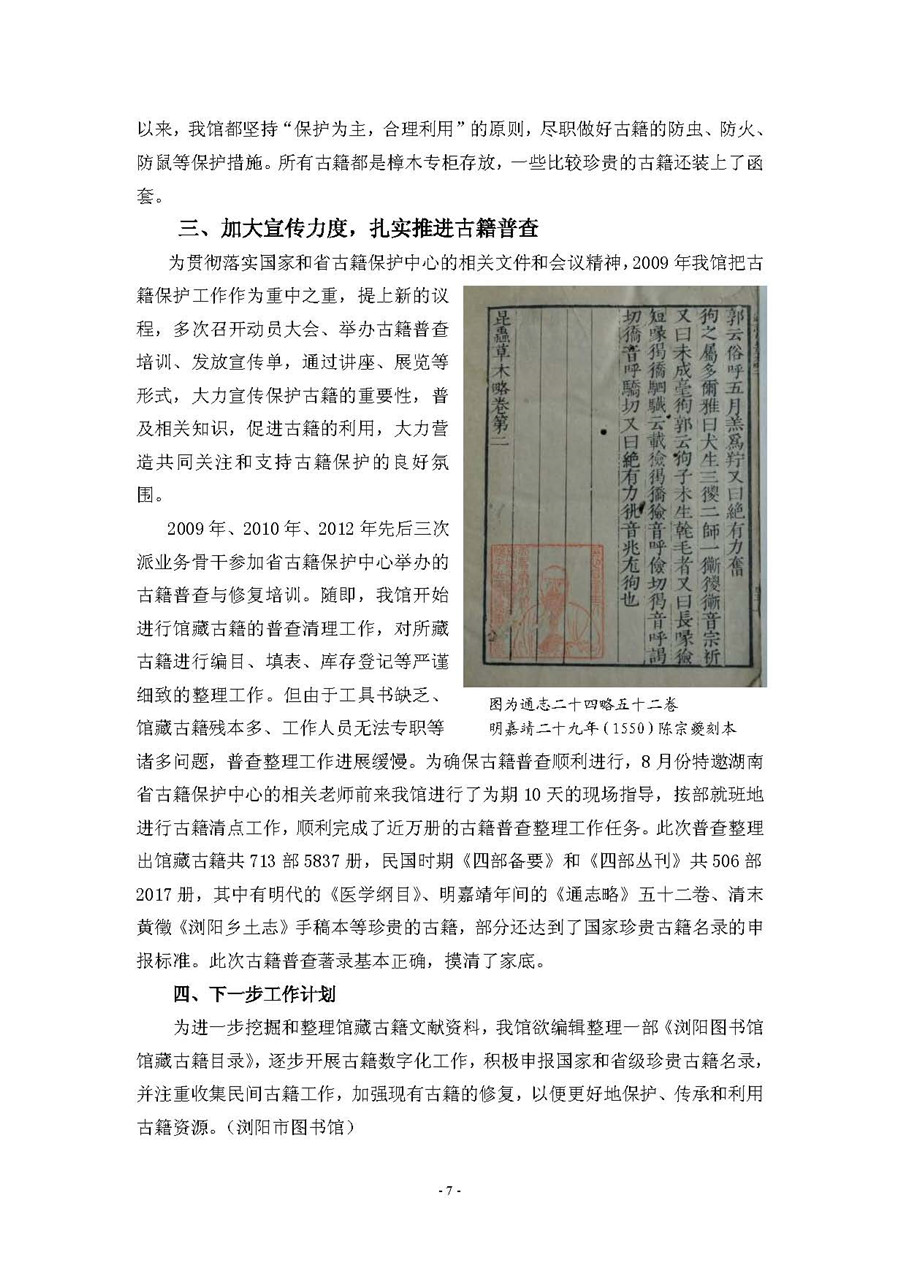 以来，我馆都坚持“保护为主，合理利用”的原则，尽职做好古籍的防虫、防火、
防鼠等保护措施。所有古籍都是樟木专柜存放，一些比较珍贵的古籍还装上了函
套。
三、加大宣传力度，扎实推进古籍普查
为贯彻落实国家和省古籍保护中心的相关文件和会议精神，2009 年我馆把古
籍保护工作作为重中之重，提上新的议
程，多次召开动员大会、举办古籍普查
培训、发放宣传单，通过讲座、展览等
形式，大力宣传保护古籍的重要性，普
及相关知识，促进古籍的利用，大力营
造共同关注和支持古籍保护的良好氛
围。
2009 年、2010 年、2012 年先后三次
派业务骨干参加省古籍保护中心举办的
古籍普查与修复培训。随即，我馆开始
进行馆藏古籍的普查清理工作，对所藏
古籍进行编目、填表、库存登记等严谨
细致的整理工作。但由于工具书缺乏、
馆藏古籍残本多、工作人员无法专职等
郭云俗呼五月羔為羜又曰絕有力奮
狗之屬多爾雅曰犬生三猣二師一獑猣獑音宗祈
又曰未成毫狗郭云狗子未生乾毛者又曰長喙獫
短喙猲獢駟驖云載獫猲獢獫音呼儉切猲音呼謁
切獢音呼驕切又曰絕有力狣音兆尨狗也
昆蟲草木略卷第二
图为通志二十四略五十二卷
明嘉靖二十九年（1550）陈宗夔刻本
诸多问题，普查整理工作进展缓慢。为确保古籍普查顺利进行，8 月份特邀湖南
省古籍保护中心的相关老师前来我馆进行了为期 10 天的现场指导，按部就班地
进行古籍清点工作，顺利完成了近万册的古籍普查整理工作任务。此次普查整理
出馆藏古籍共 713 部 5837 册，民国时期《四部备要》和《四部丛刊》共 506 部
2017 册，其中有明代的《医学纲目》、明嘉靖年间的《通志略》五十二卷、清末
黄徵《浏阳乡土志》手稿本等珍贵的古籍，部分还达到了国家珍贵古籍名录的申
报标准。此次古籍普查著录基本正确，摸清了家底。
四、下一步工作计划
为进一步挖掘和整理馆藏古籍文献资料，我馆欲编辑整理一部《浏阳图书馆
馆藏古籍目录》，逐步开展古籍数字化工作，积极申报国家和省级珍贵古籍名录，
并注重收集民间古籍工作，加强现有古籍的修复，以便更好地保护、传承和利用
古籍资源。（浏阳市图书馆）
- 7 -